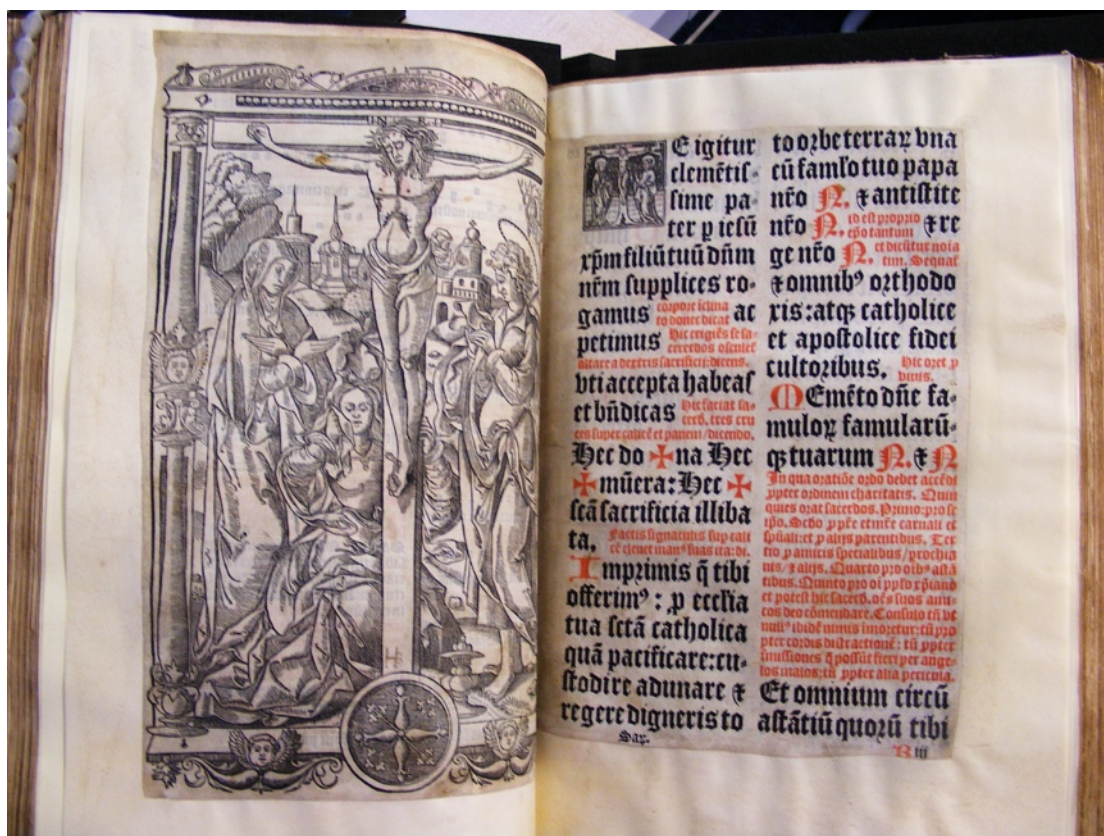 INRI
E igitur
clemētis-
sime pa-
ter p iesū
xp̄m filiū tuū dn̄m
nr̄m supplices ro-
gamus corpore īclina
to donec dicat ac
petimus Hic erigēs se sa-
cerdos osculet
altare a dextris sacrificij: dicens.
vti accepta habeas
et bn̄dicas Hic faciat sa-
cerd. tres cru
ces super calicē et panem/dicendo.
Hec do ✠ na Hec
✠ mūera: Hec ✠
scā sacrificia illiba
ta. Factis signaculis sup cali
cē eleuet manꝰ suas ita: di.
Imprimis q̄ tibi
offerimꝰ: ꝓ ecclia
tua sctā catholica
quā pacificare: cu-
stodire adunare ⁊
regere digneris to
Sax.
to orbe terraꝝ vna
cū famło tuo papa
nr̄o N. ⁊ antistite
nr̄o N. id est proprio
ep̄o tantum ⁊ re
ge nr̄o N. et dicūtur noīa
tim. Sequat̄
⁊ omnibꝰ orthodo
xis: atqꝫ catholice
et apostolice fidei
cultoribus. Hic oret ꝓ
viuis.
MEmēto dn̄e fa-
muloꝝ famularū-
qꝫ tuarum N. ⁊ N
In qua oratiōe ordo debet attēdi
ꝓpter ordinem charitatis. Quin
quies orat sacerdos. Primo: pro se
ip̄o. Scd̄o ꝓ pr̄e et mr̄e carnali et
sp̄uali: et ꝓ alijs parentibus. Ter
tio ꝓ amicis specialibus/prochia
nis/⁊ alijs. Quarto pro oībꝰ astā
tibus. Quinto pro oī pp̄lo xp̄iano
et potest hic sacerd. oēs suos ami-
cos deo cōmendare. Consulo tn̄ vt
nullꝰ ibidē nimis īmoretur: tū pro
pter cordis distractionē: tū ꝓpter
īmissiones q̄ possūt fieri per ange-
los malos: tū ꝓpter alia pericula.
Et omnium circū
astātiū quorū tibi
B iii